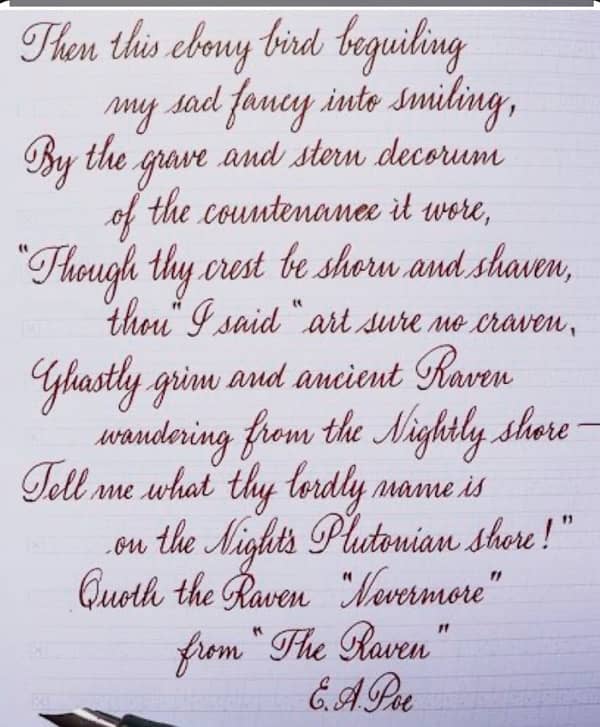 Then this ebony bird beguiling
my sad fancy into smiling,
By the grave and stern decorum
of the countenance it wore,
"Though thy crest be shorn and shaven,
thou" I said "art sure no craven,
Ghastly grim and ancient Raven
wandering from the Nightly shore —
Tell me what thy lordly name is
on the Night's Plutonian shore!"
Quoth the Raven "Nevermore"
from "The Raven"
E. A. Poe